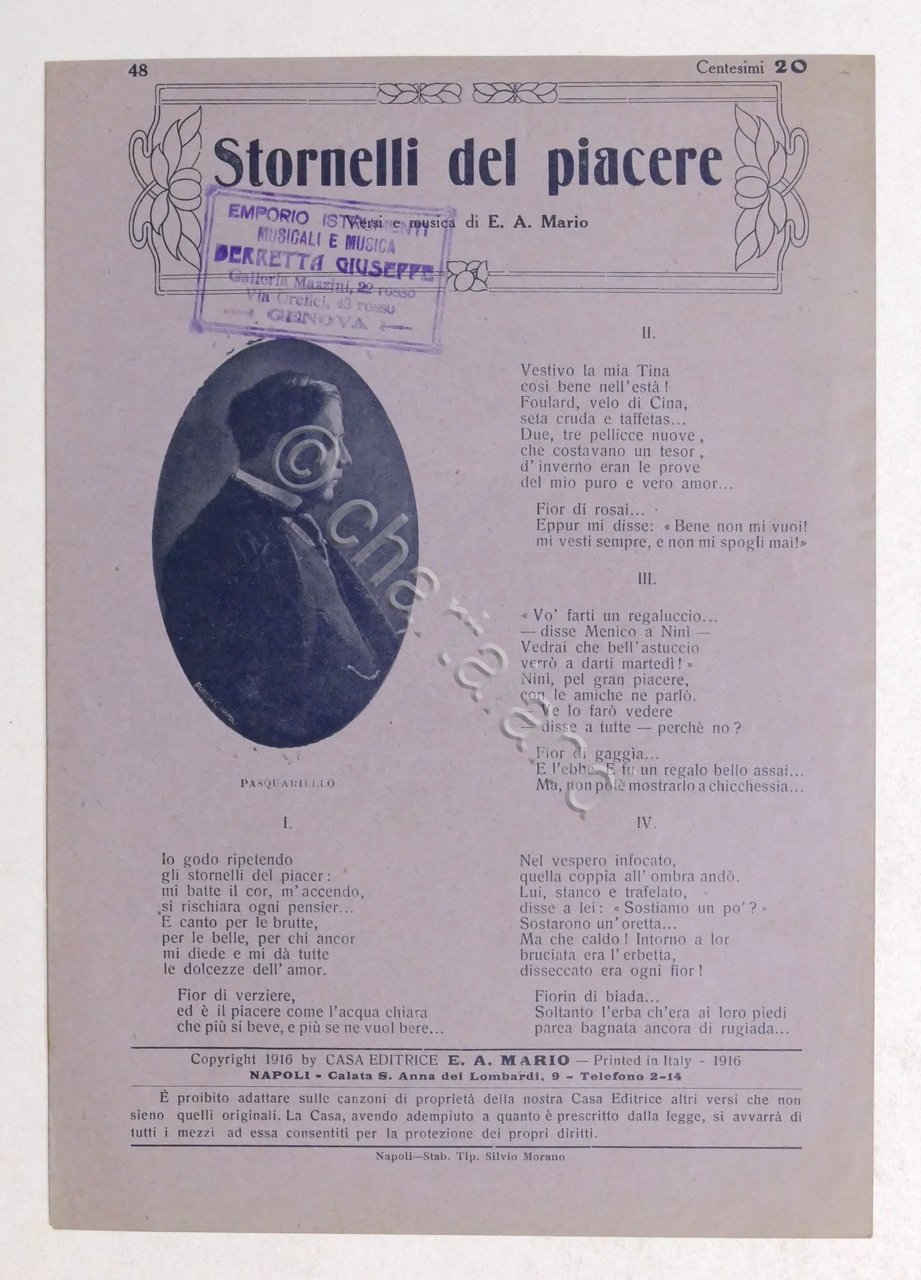 48
Centesimi 20
Stornelli del piacere
Versi e musica di E. A. Mario
EMPORIO ISTRUMENTI
MUSICALI E MUSICA
DERRETTA GIUSEPPE
Galleria Mazzini, 22 rosso
Via Orefici, 43 rosso
GENOVA
© chartaland
PASQUARIELLO
I.
Io godo ripetendo
gli stornelli del piacer:
mi batte il cor, m'accendo,
si rischiara ogni pensier...
E canto per le brutte,
per le belle, per chi ancor
mi diede e mi dà tutte
le dolcezze dell'amor.
Fior di verziere,
ed è il piacere come l'acqua chiara
che più si beve, e più se ne vuol bere...
II.
Vestivo la mia Tina
così bene nell'està!
Foulard, velo di Cina,
seta cruda e taffetas...
Due, tre pellicce nuove,
che costavano un tesor,
d'inverno eran le prove
del mio puro e vero amor...
Fior di rosai...
Eppur mi disse: «Bene non mi vuoi!
mi vesti sempre, e non mi spogli mai!»
III.
«Vo' farti un regaluccio...
— disse Menico a Ninì —
Vedrai che bell'astuccio
verrò a darti martedì!»
Ninì, pel gran piacere,
con le amiche ne parlò.
— Ve lo farò vedere
— disse a tutte — perchè no?
Fior di gaggìa...
E l'ebbe. E fu un regalo bello assai...
Ma, non potè mostrarlo a chicchessia...
IV.
Nel vespero infocato,
quella coppia all'ombra andò.
Lui, stanco e trafelato,
disse a lei: «Sostiamo un po'?»
Sostarono un'oretta...
Ma che caldo! Intorno a lor
bruciata era l'erbetta,
disseccato era ogni fior!
Fiorin di biada...
Soltanto l'erba ch'era ai loro piedi
parea bagnata ancora di rugiada...
Copyright 1916 by CASA EDITRICE E. A. MARIO — Printed in Italy - 1916
NAPOLI - Calata S. Anna dei Lombardi, 9 - Telefono 2-14
È proibito adattare sulle canzoni di proprietà della nostra Casa Editrice altri versi che non
sieno quelli originali. La Casa, avendo adempiuto a quanto è prescritto dalla legge, si avvarrà di
tutti i mezzi ad essa consentiti per la protezione dei propri diritti.
Napoli—Stab. Tip. Silvio Morano